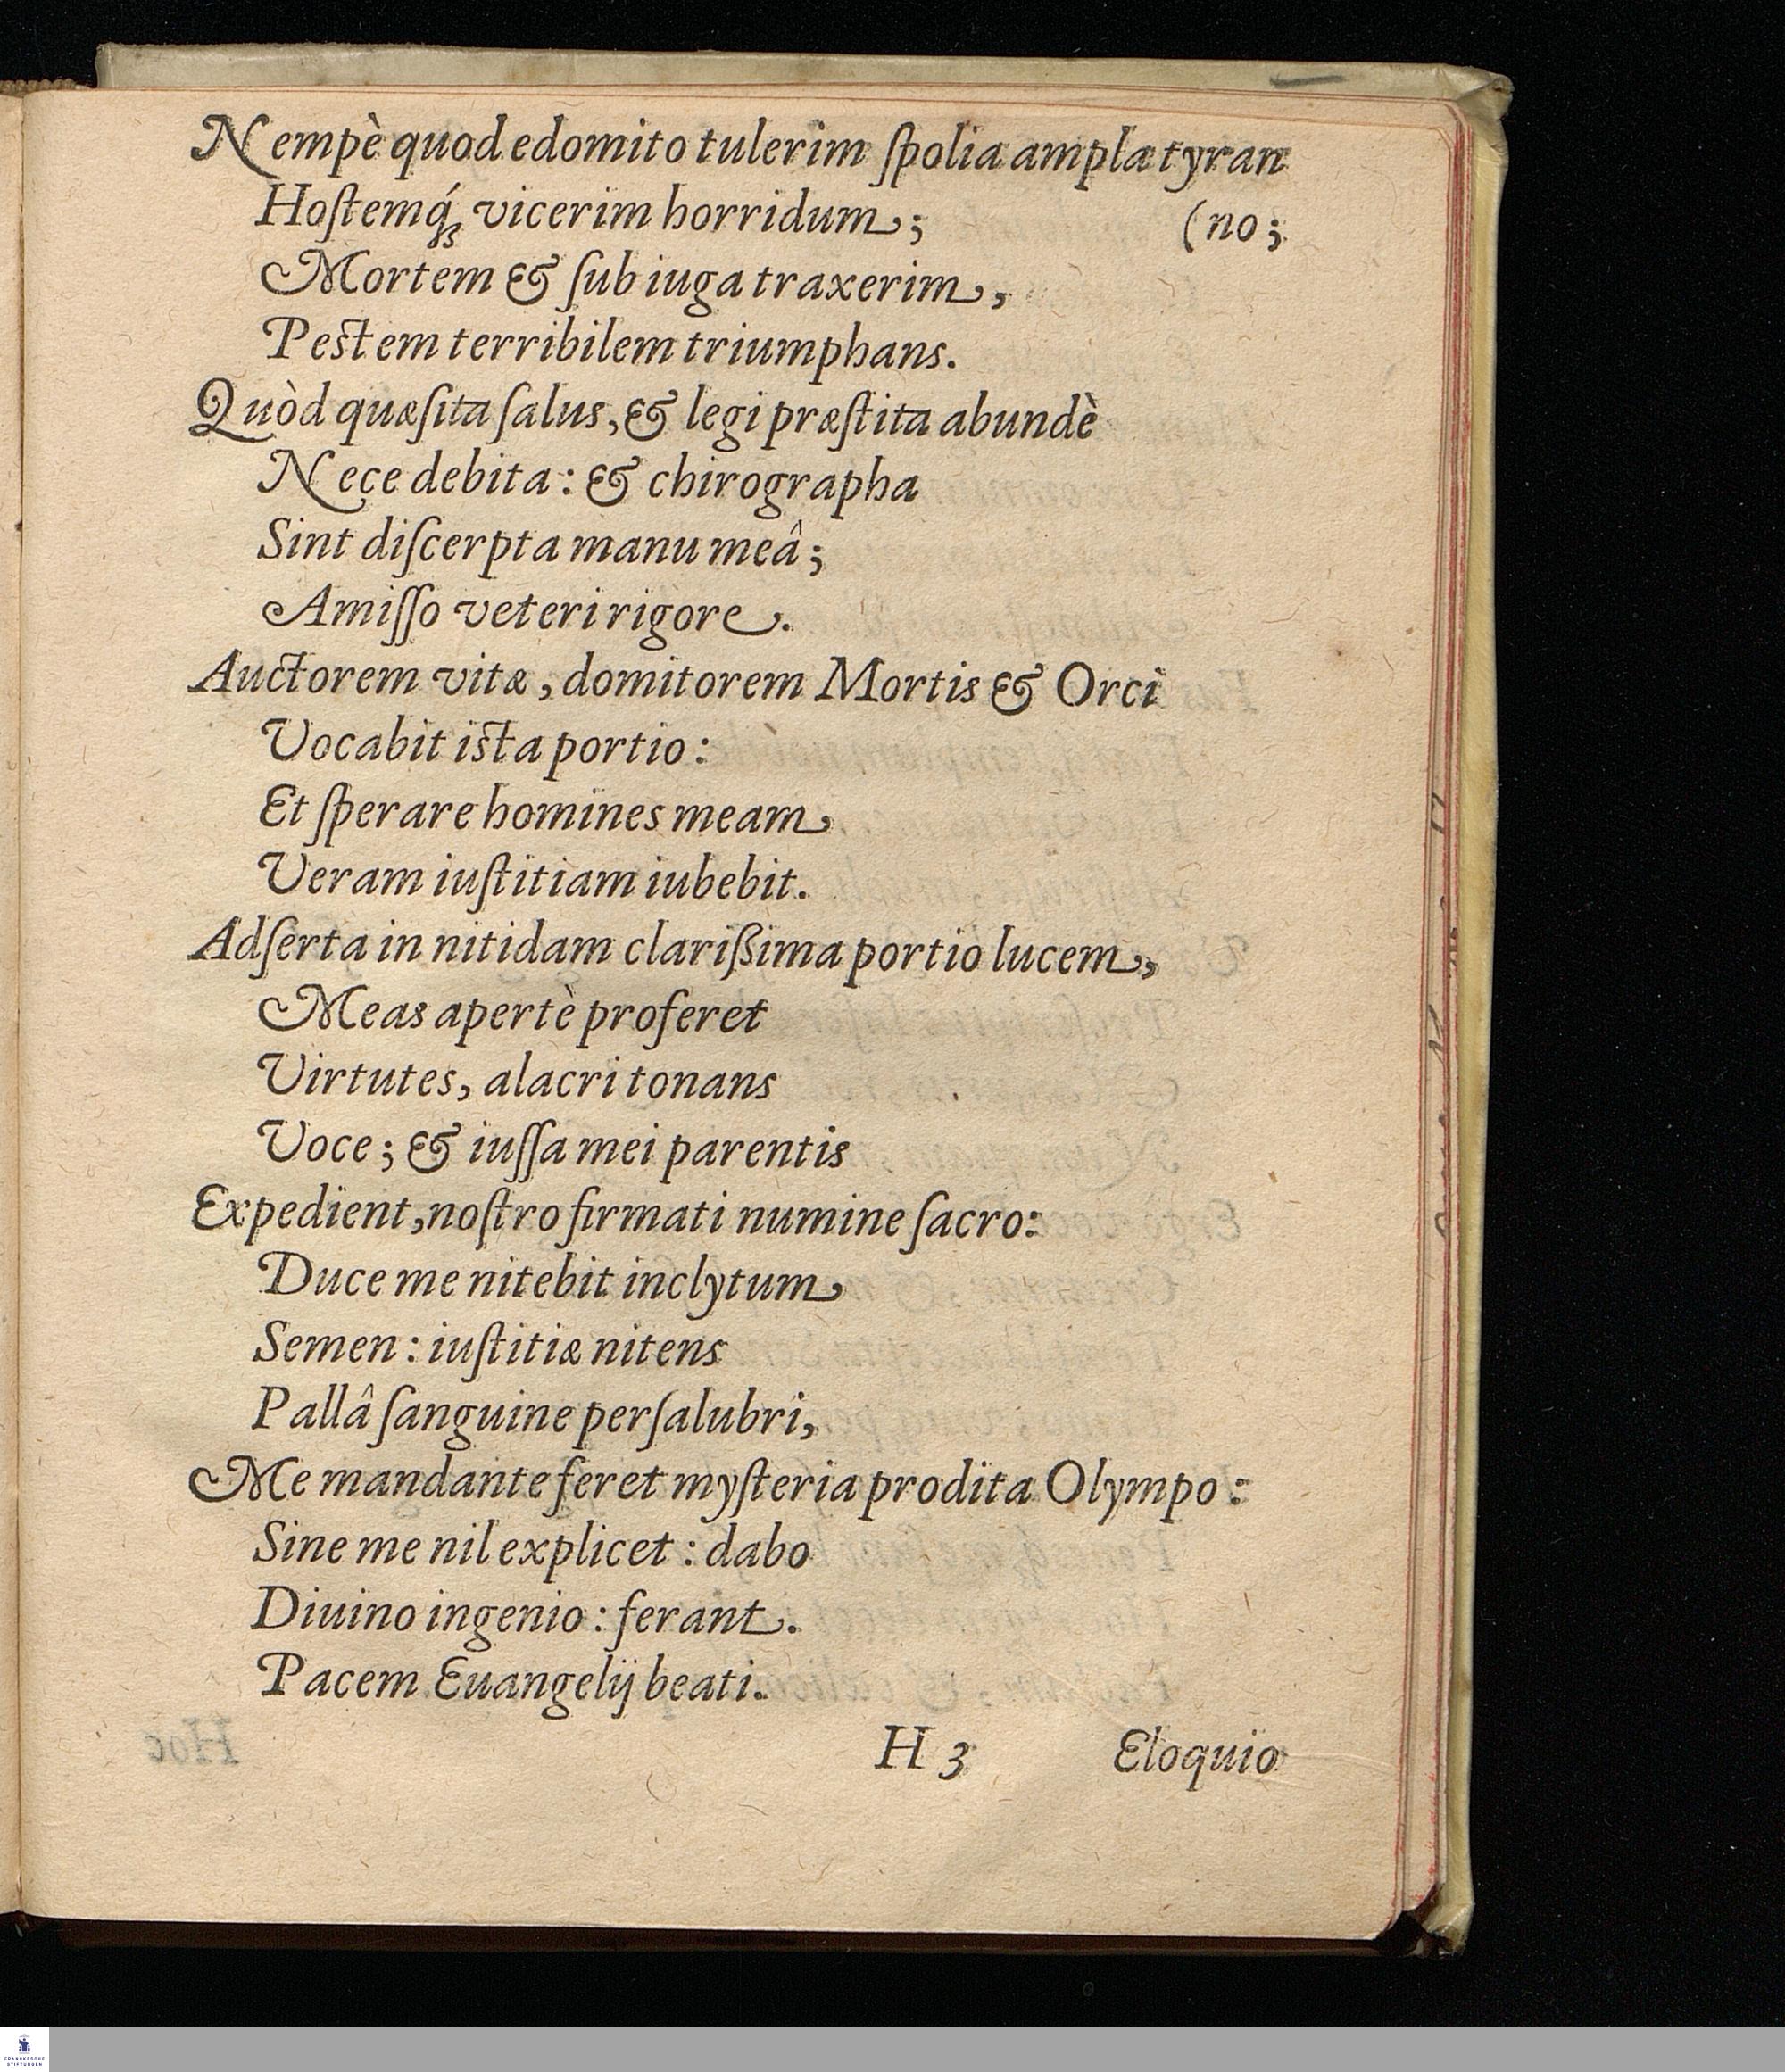 Nempè quod edomito tulerim ſpolia ampla tyran
Hoſtemq́ꝫ vicerim horridum; (no;
Mortem & ſub iuga traxerim,
Peſtem terribilem triumphans.
Quòd quæſita ſalus, & legi præſtita abundè
Nece debita: & chirographa
Sint diſcerpta manu meâ;
Amiſſo veteri rigore.
Auctorem vitæ, domitorem Mortis & Orci
Vocabit iſta portio:
Et ſperare homines meam
Veram iuſtitiam iubebit.
Adſerta in nitidam clariſsima portio lucem,
Meas apertè proferet
Virtutes, alacri tonans
Voce; & iuſſa mei parentis
Expedient, noſtro firmati numine ſacro:
Duce me nitebit inclytum
Semen: iuſtitiæ nitens
Pallâ ſanguine perſalubri,
Me mandante feret myſteria prodita Olympo:
Sine me nil explicet: dabo
Diuino ingenio: ferant.
Pacem Euangelij beati.
H 3 Eloquio
FRANCKESCHE
STIFTUNGEN